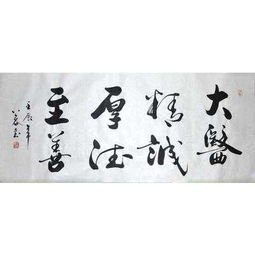 大醫
精誠
厚德
至善
壬辰年